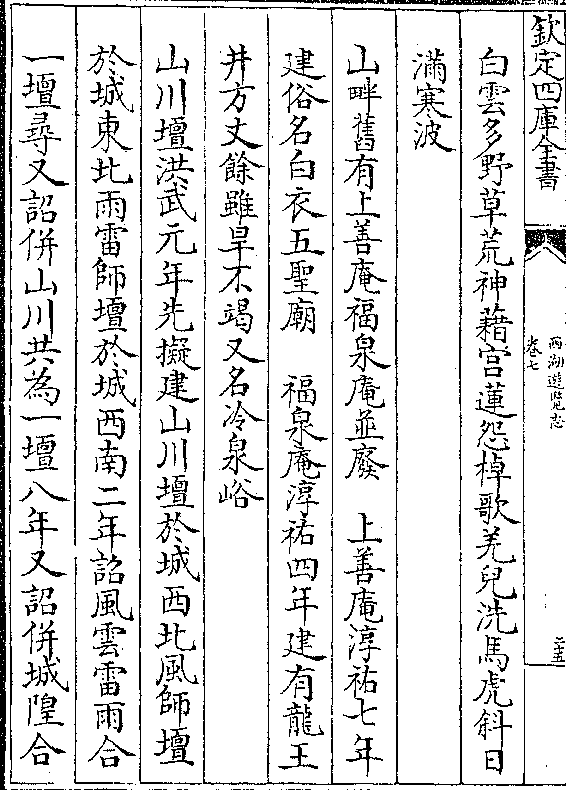 欽定四庫全書
西湖遊覽志
卷七
二十五
白雲多野草荒神藉宫蓮怨棹歌羌兒洗馬虎斜日
滿寒波
山畔舊有上善庵福泉庵並廢　上善庵淳祐七年
建俗名白衣五聖廟　福泉庵淳祐四年建有龍王
井方丈餘雖旱不竭又名冷泉峪
山川壇洪武元年先擬建山川壇於城西北風師壇
於城東北雨雷師壇於城西南二年詔風雲雷雨合
一壇尋又詔併山川共為一壇八年又詔併城隍合